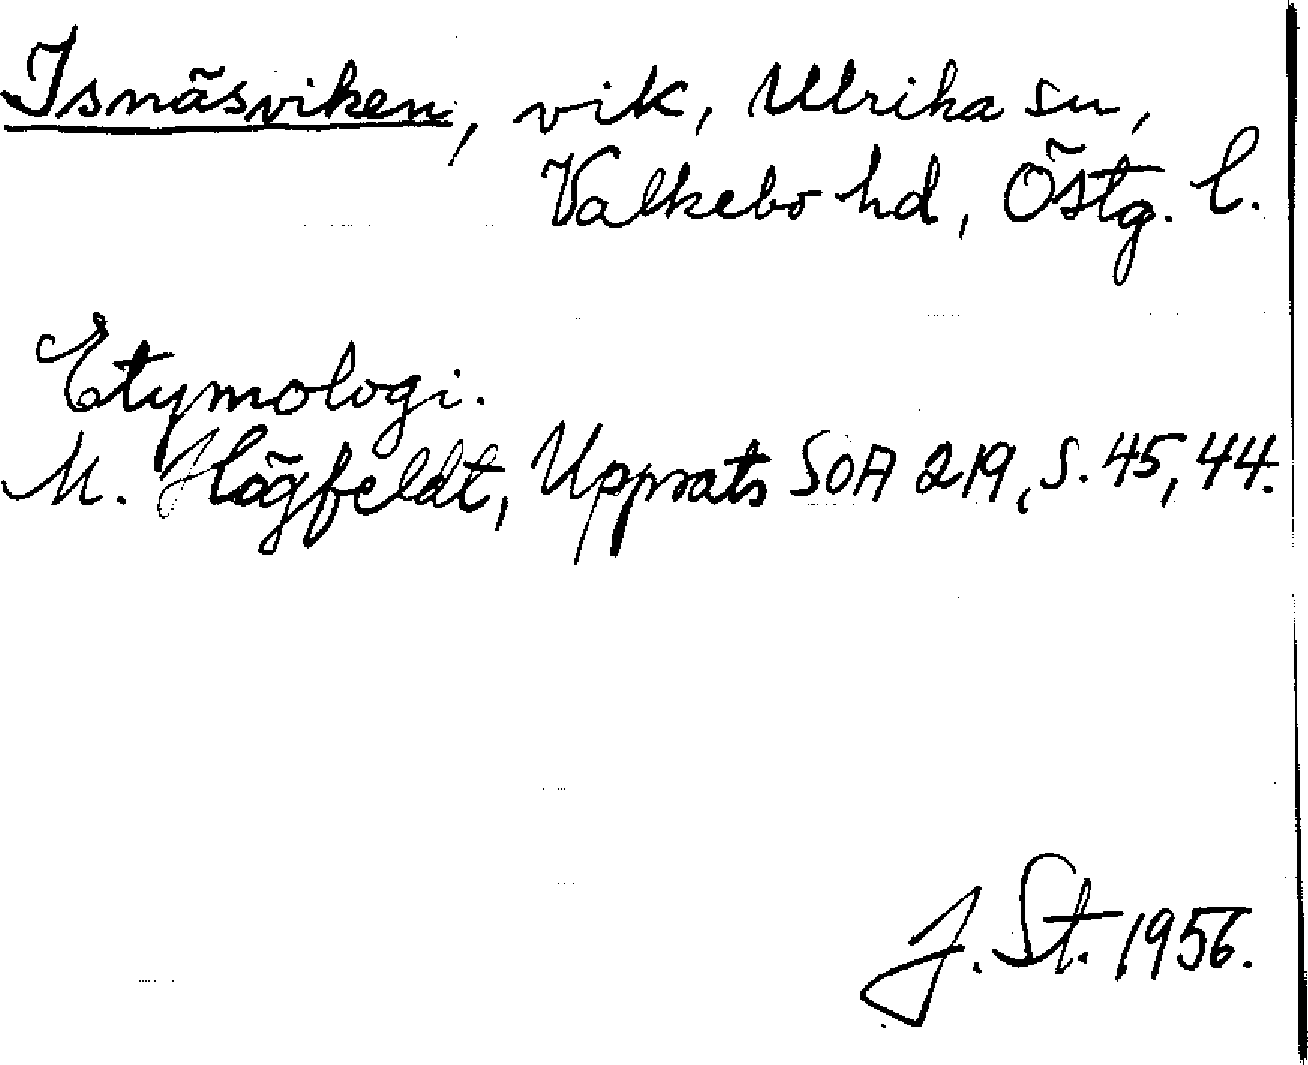 Isnäsviken, vik, Ulrika sn,
Valkebo hd, Östg. l.
Etymologi.
M. Högfeldt, Uppsats SOA 219, S. 45, 44.
J. St. 1956.